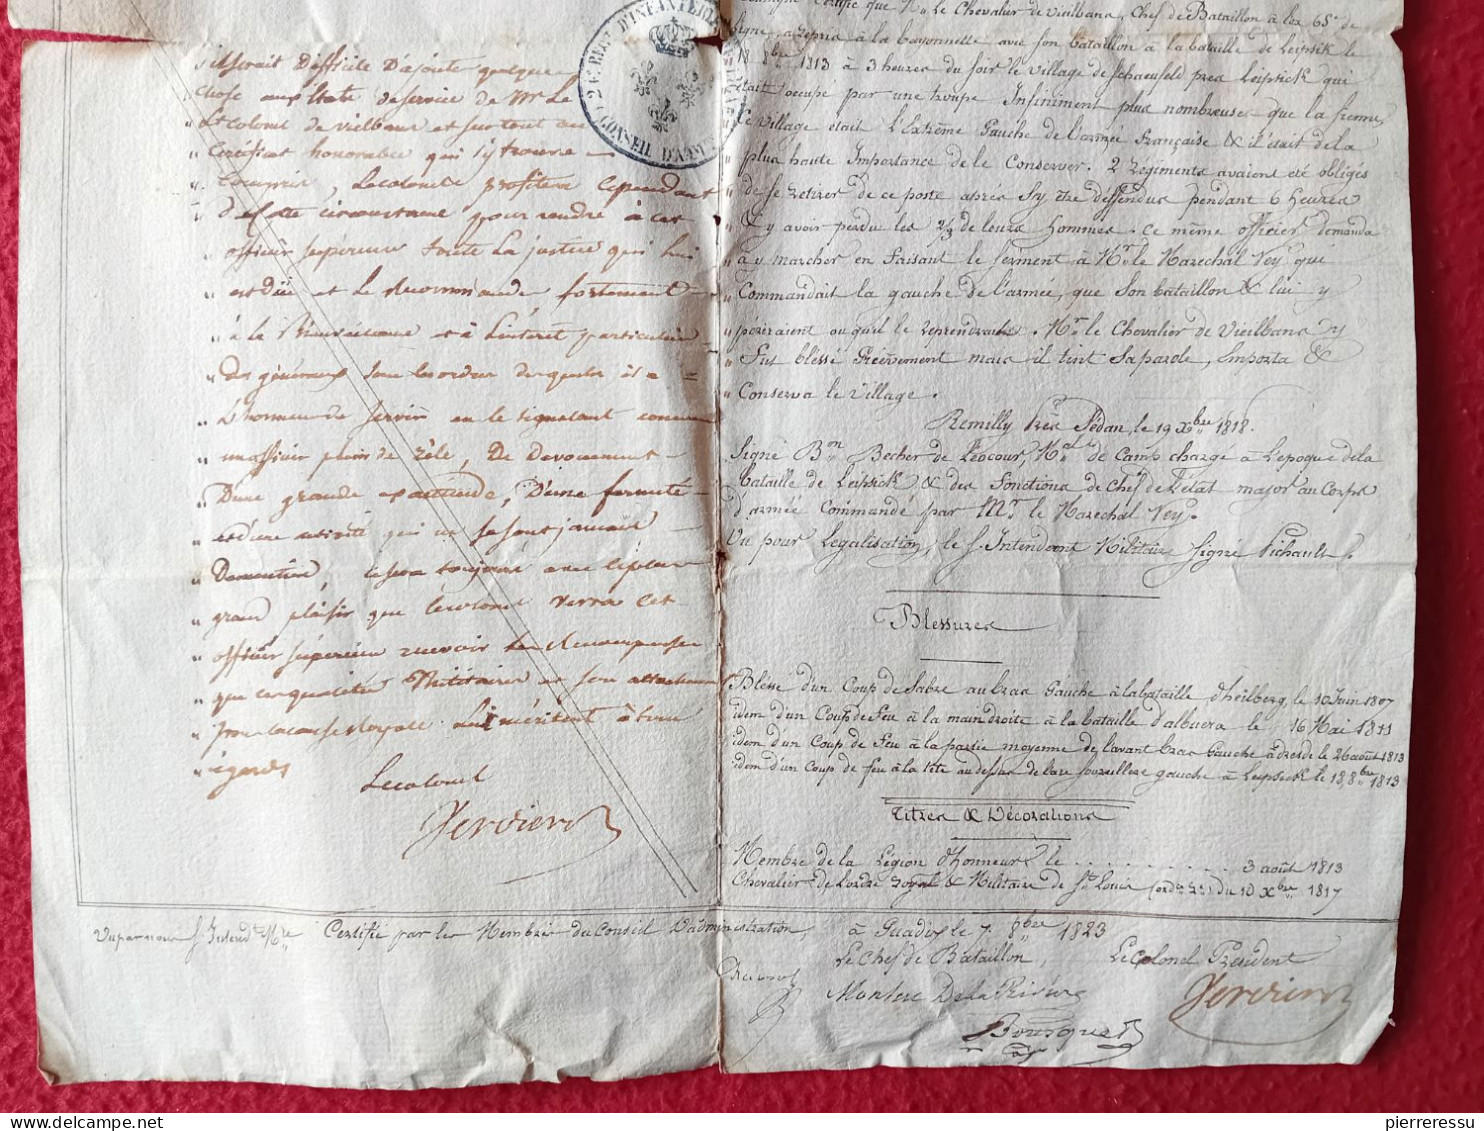 il serait Difficile D'ajouter quelque
chose aux Etats de service de Mr Le
Lt Colonel de Vielbans et surtout au
Certificat honorable qui s'y trouve
Compris, Le colonel profitera Cependant
de cette circonstance pour rendre à cet
officier supérieur toute la justice qui lui
est düe et Le Recommande fortement
à la Bienveillance et à L'interet particulier
Des généraux sous les ordres desquels il a
L'honneur de servir en le signalant comme
un officier plein de zèle, De devouement
D'une grande aptitude, D'une fermeté
et d'une activité qui ne se sont jamais
Dementies, ce sera toujours avec le plus
grand plaisir que le colonel verra cet
officier supérieur recevoir les Recompenses
que ces qualités Militaires et son attachement
pour la cause Royale lui méritent à tous
égards
Le colonel
Vervier
2e REGt D'INFANTERIE
CONSEIL D'ADMon
certifie que Mr Le Chevalier de Vieilbans, Chef de Bataillon à lex 65e de
Ligne, a repris à la bayonnette avec son bataillon à la bataille de Leipsik le
18 8bre 1813 à 3 heures du soir le village de Schaenfeld près Leipsick qui
était occupé par une troupe Infiniment plus nombreuse que la sienne,
Ce village était L'Extrême Gauche de L'armée Française & il était de la
plus haute Importance de le Conserver. 2 Régiments avaient été obligés
de se retirer de ce poste après s'y être deffendus pendant 6 heures
& y avoir perdu les 2/3 de leurs hommes. ce même officier demanda
à y marcher en Faisant le serment à Mr le Marechal Ney qui
Commandait la gauche de L'armée, que son bataillon & lui y
périraient ou qu'il le reprendrait. Mr le Chevalier de Vieilbans y
Fut blessé Grièvement mais il tint Sa parole, emporta &
Conserva le village.
Remilly Près Sédan, le 19 Xbre 1818.
Signé Bon Becher de Léocour, Mal de Camp chargé à L'epoque de la
bataille de Leipsick & des Fonctions de Chef de L'état major au Corps
d'armée Commandé par Mr le Marechal Ney.
Vu pour Legalisation, le S. Intendant Militaire Signé Pichault.
Blessures
Blessé d'un Coup de Sabre au bras Gauche à la bataille d'heilberg, le 10 Juin 1807
idem d'un Coup de Feu à la main droite à la bataille d'albuera le 16 Mai 1811
idem d'un Coup de Feu à la partie moyenne de l'avant bras Gauche à dresde le 26 août 1813
idem d'un Coup de feu à la tête au dessus de la xe Sourcillere gauche à Leipsick le 18, 8bre 1813
Titres & Décorations
Membre de la Légion d'honneur le . . . . . . . . . . 3 août 1813
Chevalier de L'ordre royal & Militaire de St Louis du 10 Xbre 1817
Vu par nous S. Intendt Mre
Certifié par les Membres du Conseil D'administration,
à Guadix le 7. 8bre 1823
Le Chef de Bataillon,
Le Colonel President
De la Rivière
Bousquet
Vervier
pierreressu